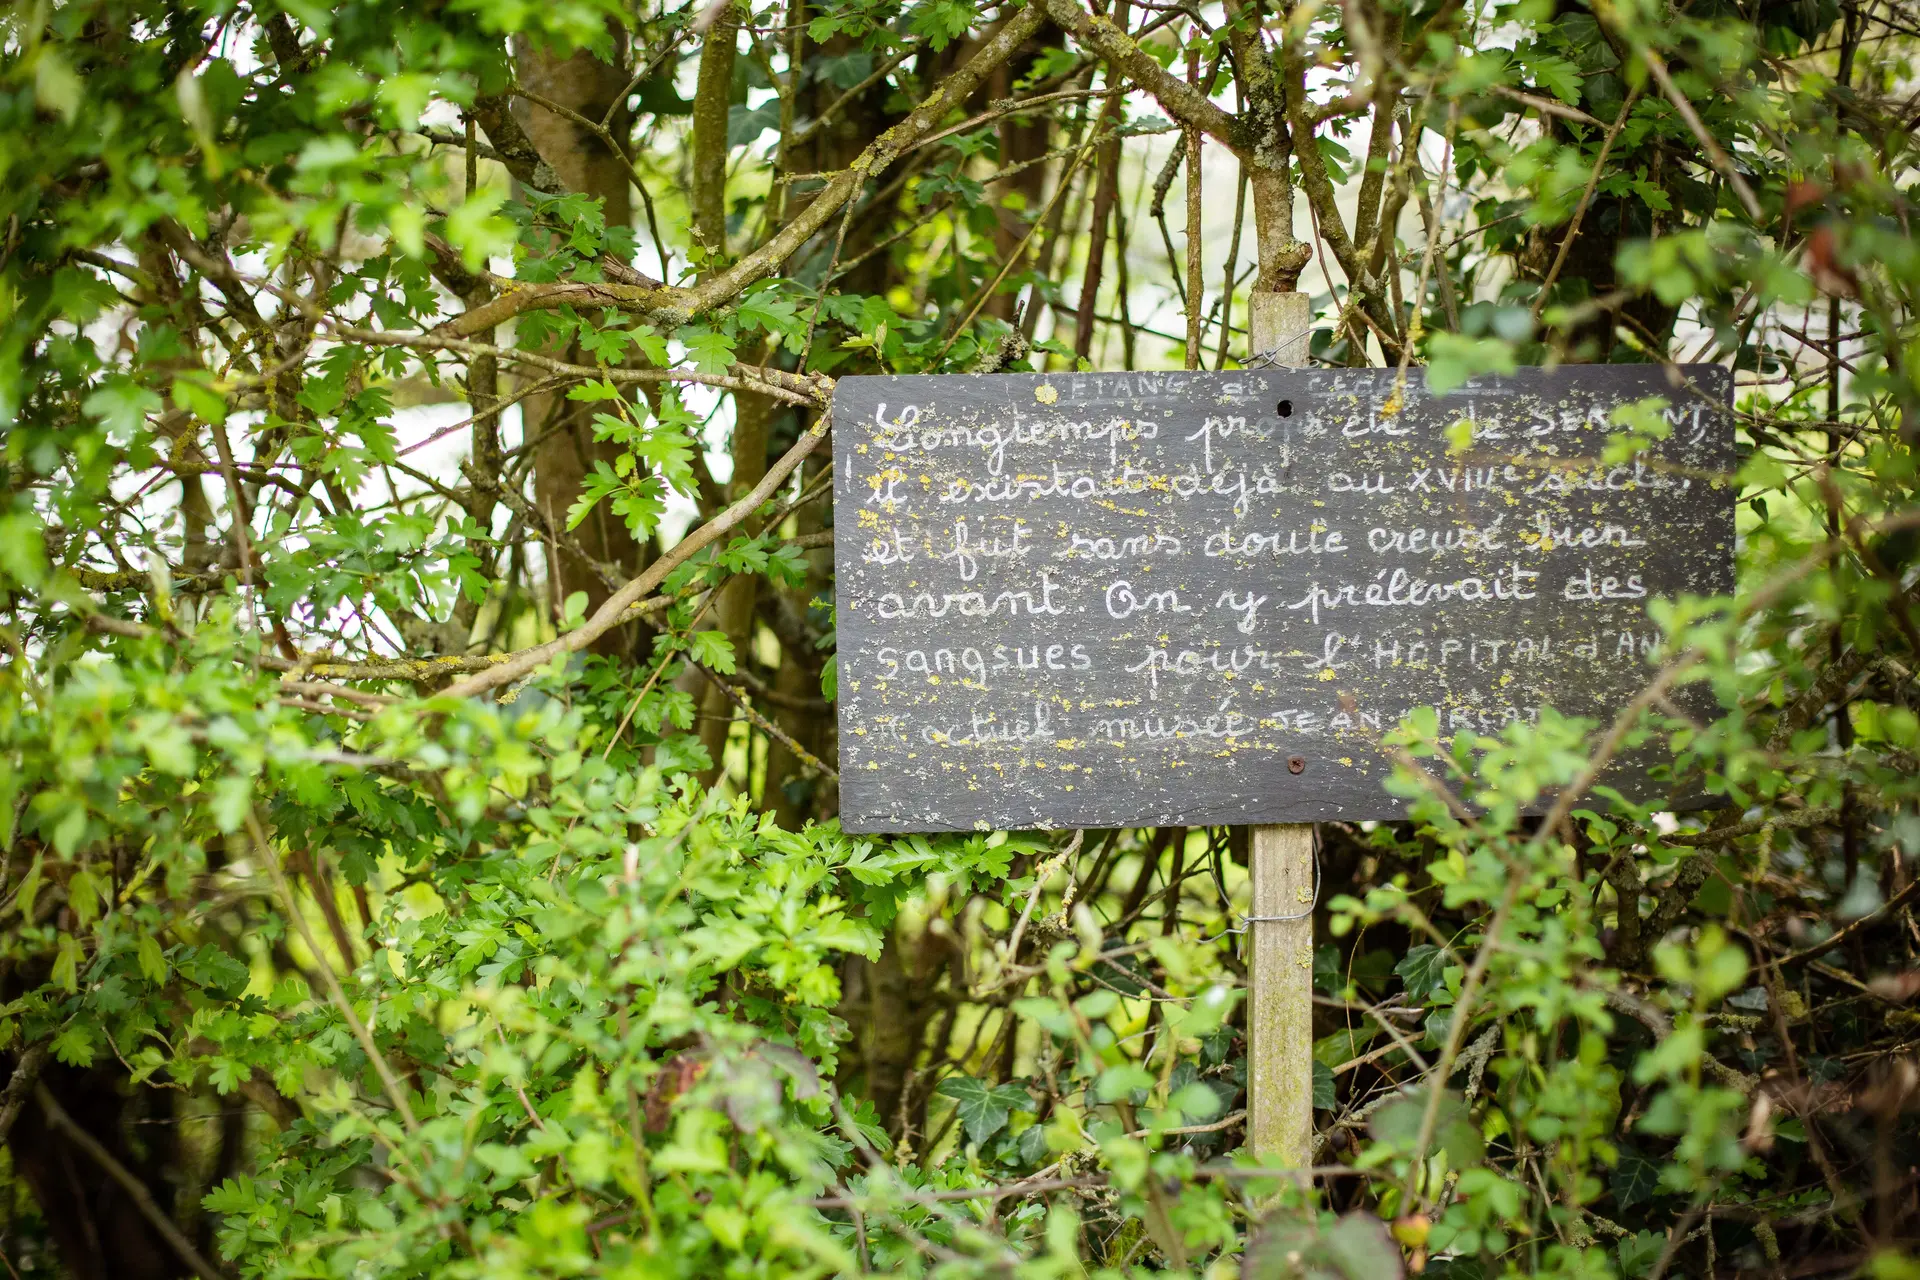 ETANG du
Longtemps propriété de SERRANT,
il existait déjà au XVIIIe siècle,
et fut sans doute creusé bien
avant. On y prélevait des
sangsues pour l'HÔPITAL d'AN
actuel musée JEAN LURÇAT